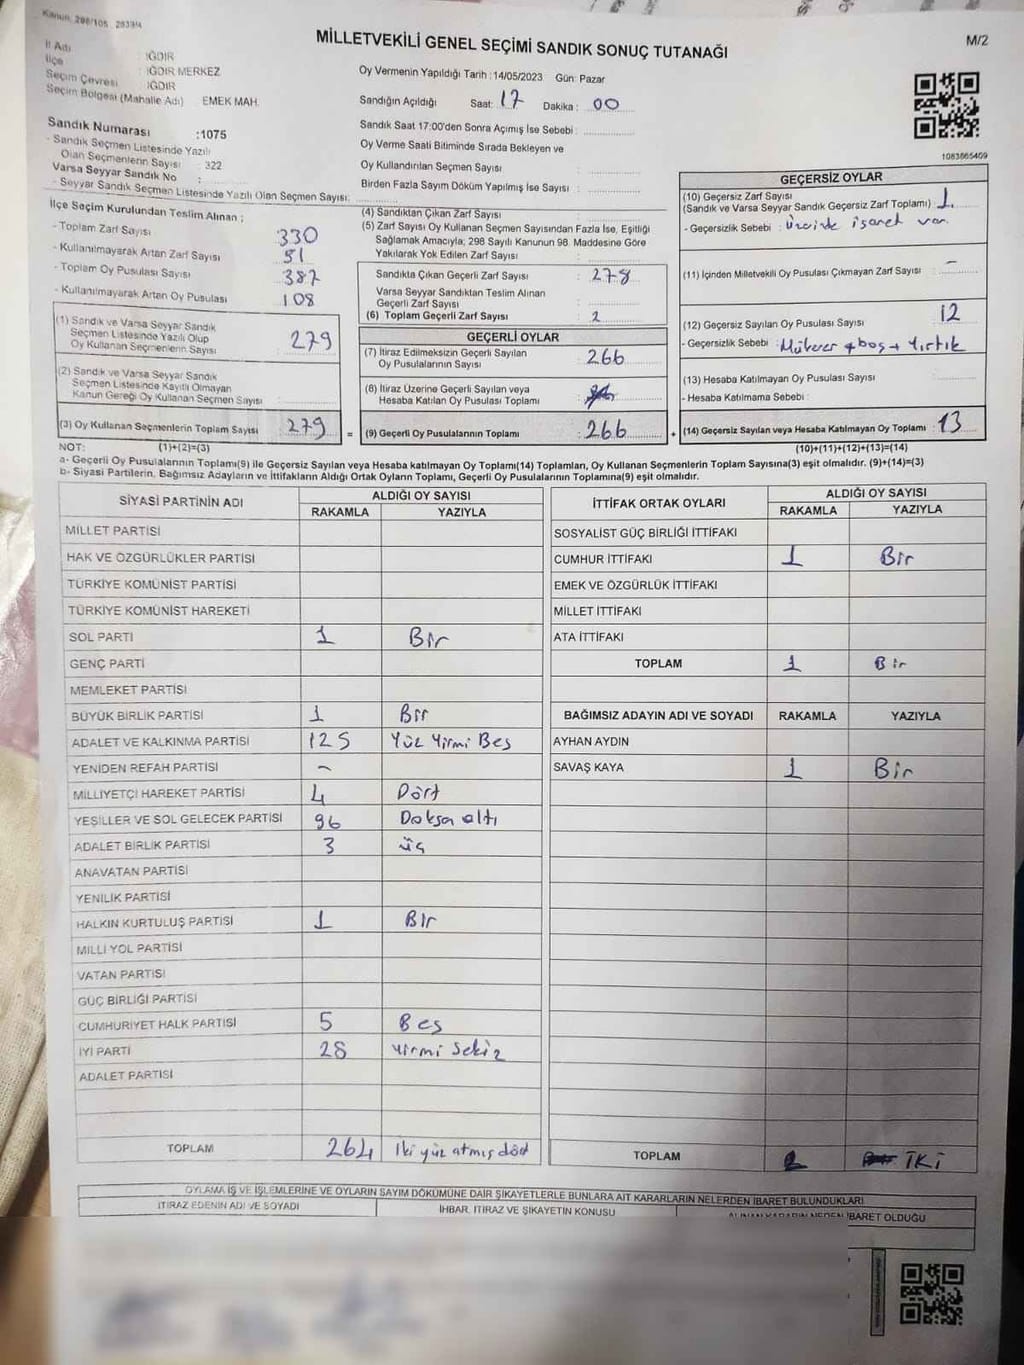 Kanun: 298/105
MİLLETVEKİLİ GENEL SEÇİMİ SANDIK SONUÇ TUTANAĞI
M/2
İl Adı : IĞDIR
İlçe : IĞDIR MERKEZ
Seçim Çevresi : IĞDIR
Seçim Bölgesi (Mahalle Adı) EMEK MAH.
Sandık Numarası :1075
- Sandık Seçmen Listesinde Yazılı
Olan Seçmenlerin Sayısı : 322
Varsa Seyyar Sandık No :
- Seyyar Sandık Seçmen Listesinde Yazılı Olan Seçmen Sayısı:
Oy Vermenin Yapıldığı Tarih :14/05/2023 Gün: Pazar
Sandığın Açıldığı Saat: 17 Dakika : 00
Sandık Saat 17:00'den Sonra Açımış İse Sebebi :
Oy Verme Saati Bitiminde Sırada Bekleyen ve
Oy Kullandırılan Seçmen Sayısı :
Birden Fazla Sayım Döküm Yapılmış İse Sayısı :
1083865409
İlçe Seçim Kurulundan Teslim Alınan ;
- Toplam Zarf Sayısı 330
- Kullanılmayarak Artan Zarf Sayısı 51
- Toplam Oy Pusulası Sayısı 387
- Kullanılmayarak Artan Oy Pusulası 108
(1) Sandık ve Varsa Seyyar Sandık
Seçmen Listesinde Yazılı Olup
Oy Kullanan Seçmenlerin Sayısı : 279
(2) Sandık ve Varsa Seyyar Sandık
Seçmen Listesinde Kayıtlı Olmayan
Kanun Gereği Oy Kullanan Seçmen Sayısı :
(3) Oy Kullanan Seçmenlerin Toplam Sayısı : 279
(4) Sandıktan Çıkan Zarf Sayısı :
(5) Zarf Sayısı Oy Kullanan Seçmen Sayısından Fazla İse, Eşitliği
Sağlamak Amacıyla; 298 Sayılı Kanunun 98. Maddesine Göre
Yakılarak Yok Edilen Zarf Sayısı :
Sandıkta Çıkan Geçerli Zarf Sayısı : 278
Varsa Seyyar Sandıktan Teslim Alınan
Geçerli Zarf Sayısı :
(6) Toplam Geçerli Zarf Sayısı : 2
GEÇERLİ OYLAR
(7) İtiraz Edilmeksizin Geçerli Sayılan
Oy Pusulalarının Sayısı : 266
(8) İtiraz Üzerine Geçerli Sayılan veya
Hesaba Katılan Oy Pusulası Toplamı :
= (9) Geçerli Oy Pusulalarının Toplamı : 266
GEÇERSİZ OYLAR
(10) Geçersiz Zarf Sayısı
(Sandık ve Varsa Seyyar Sandık Geçersiz Zarf Toplamı) : 1
- Geçersizlik Sebebi : Üzerinde işaret var.
(11) İçinden Milletvekili Oy Pusulası Çıkmayan Zarf Sayısı : -
(12) Geçersiz Sayılan Oy Pusulası Sayısı : 12
- Geçersizlik Sebebi : Mükerer + boş + Yırtık
(13) Hesaba Katılmayan Oy Pusulası Sayısı :
- Hesaba Katılmama Sebebi :
+ (14) Geçersiz Sayılan veya Hesaba Katılmayan Oy Toplamı : 13
NOT: (1)+(2)=(3) (10)+(11)+(12)+(13)=(14)
a- Geçerli Oy Pusulalarının Toplamı(9) ile Geçersiz Sayılan veya Hesaba katılmayan Oy Toplamı(14) Toplamları, Oy Kullanan Seçmenlerin Toplam Sayısına(3) eşit olmalıdır. (9)+(14)=(3)
b- Siyasi Partilerin, Bağımsız Adayların ve İttifakların Aldığı Ortak Oyların Toplamı, Geçerli Oy Pusulalarının Toplamına(9) eşit olmalıdır.
SİYASİ PARTİNİN ADI ALDIĞI OY SAYISI
RAKAMLA YAZIYLA
MİLLET PARTİSİ
HAK VE ÖZGÜRLÜKLER PARTİSİ
TÜRKİYE KOMÜNİST PARTİSİ
TÜRKİYE KOMÜNİST HAREKETİ
SOL PARTİ 1 Bir
GENÇ PARTİ
MEMLEKET PARTİSİ
BÜYÜK BİRLİK PARTİSİ 1 Bir
ADALET VE KALKINMA PARTİSİ 125 Yüz Yirmi Beş
YENİDEN REFAH PARTİSİ -
MİLLİYETÇİ HAREKET PARTİSİ 4 Dört
YEŞİLLER VE SOL GELECEK PARTİSİ 96 Doksan altı
ADALET BİRLİK PARTİSİ 3 üç
ANAVATAN PARTİSİ
YENİLİK PARTİSİ
HALKIN KURTULUŞ PARTİSİ 1 Bir
MİLLİ YOL PARTİSİ
VATAN PARTİSİ
GÜÇ BİRLİĞİ PARTİSİ
CUMHURİYET HALK PARTİSİ 5 Beş
İYİ PARTİ 28 yirmi sekiz
ADALET PARTİSİ
TOPLAM 264 İki yüz atmış dört
İTTİFAK ORTAK OYLARI ALDIĞI OY SAYISI
RAKAMLA YAZIYLA
SOSYALİST GÜÇ BİRLİĞİ İTTİFAKI
CUMHUR İTTİFAKI 1 Bir
EMEK VE ÖZGÜRLÜK İTTİFAKI
MİLLET İTTİFAKI
ATA İTTİFAKI
TOPLAM 1 Bir
BAĞIMSIZ ADAYIN ADI VE SOYADI RAKAMLA YAZIYLA
AYHAN AYDIN
SAVAŞ KAYA 1 Bir
TOPLAM 2 İKİ
OYLAMA İŞ VE İŞLEMLERİNE VE OYLARIN SAYIM DÖKÜMÜNE DAİR ŞİKAYETLERLE BUNLARA AİT KARARLARIN NELERDEN İBARET BULUNDUKLARI
İTİRAZ EDENİN ADI VE SOYADI
İHBAR, İTİRAZ VE ŞİKAYETİN KONUSU
ALINAN KARARIN NEDEN İBARET OLDUĞU